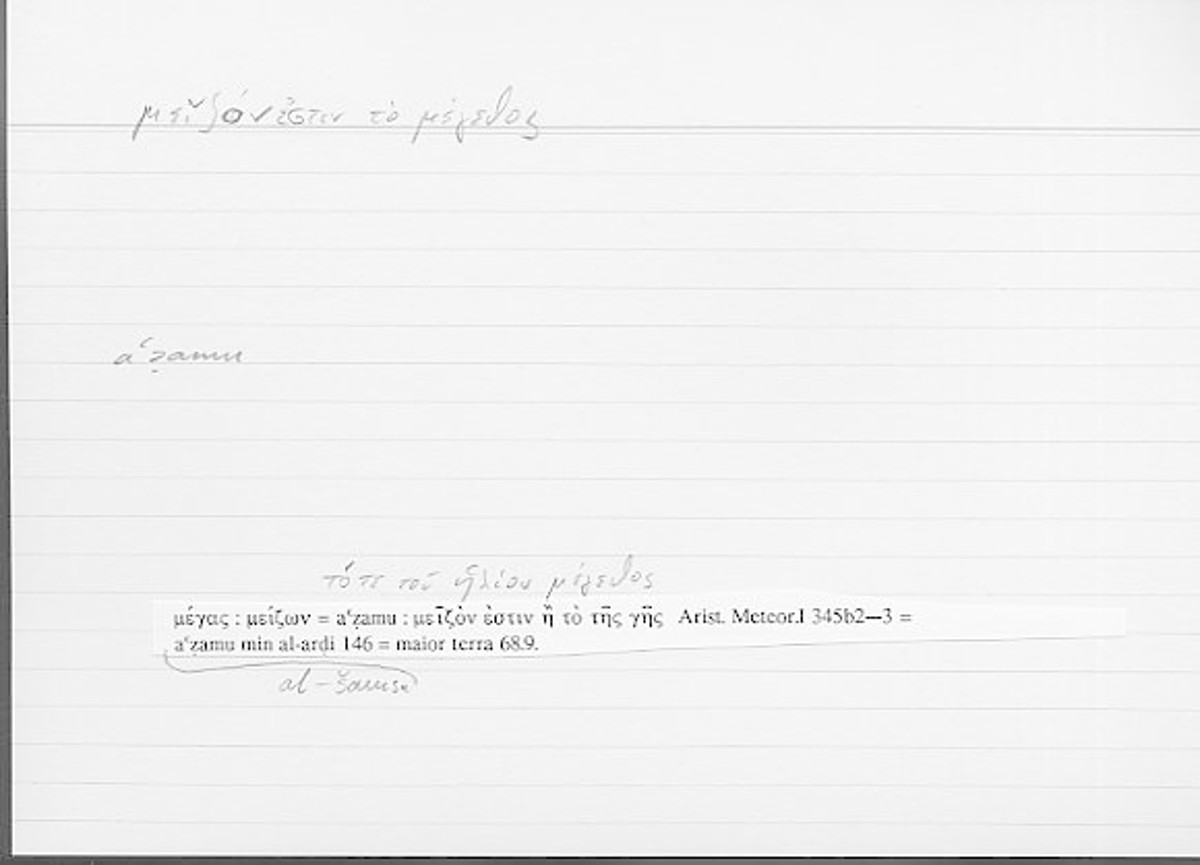 μεῖζόν ἐστιν τὸ μέγεθος
aʿẓamu
τό τε τοῦ ἡλίου μέγεθος
μέγας : μείζων = aʿẓamu : μεῖζὸν ἐστιν ἢ τὸ τῆς γῆς Arist. Meteor.I 345b2—3 =
aʿẓamu min al-arḍi 146 = maior terra 68.9.
al-šamsu